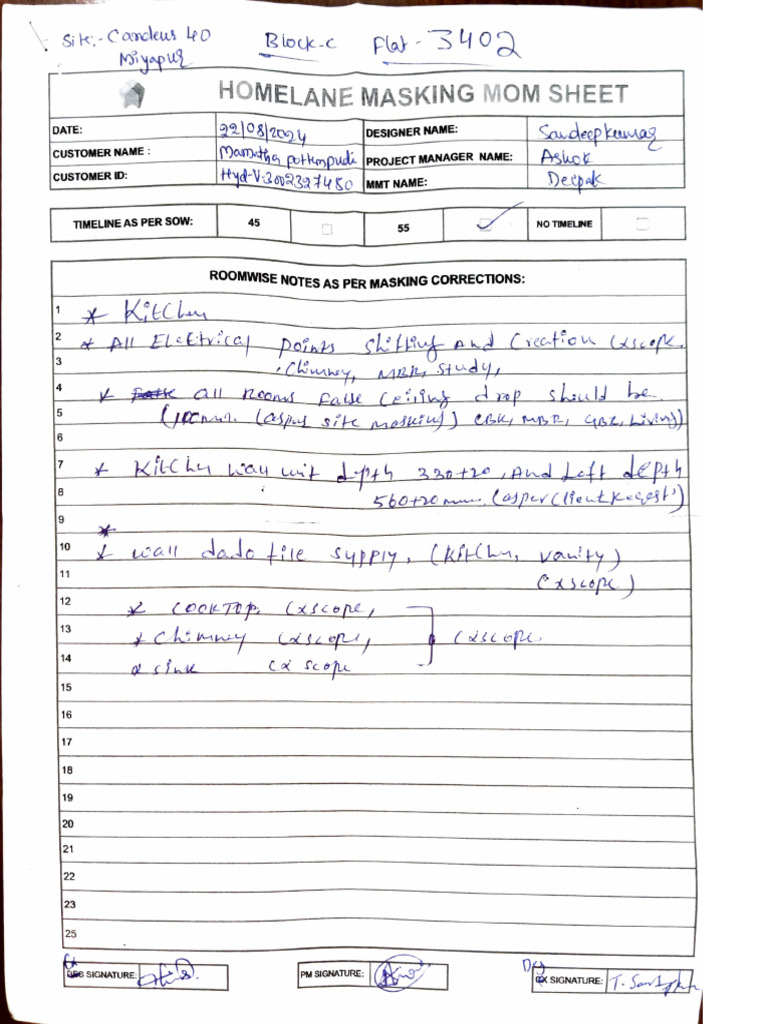 Site:- Candeus 40 Block-C Flat - 3402
Miyapur
HOMELANE MASKING MOM SHEET
DATE: 22/08/2024 DESIGNER NAME: Sandeepkumar
CUSTOMER NAME : Mamatha pottempudi PROJECT MANAGER NAME: Ashok
CUSTOMER ID: Hyd-V-3002327480 MMT NAME: Deepak
TIMELINE AS PER SOW: 45 55 ✓ NO TIMELINE
ROOMWISE NOTES AS PER MASKING CORRECTIONS:
1 * Kitchen
2 * All Electrical points shifting and Creation Cxscope.
3 Chimney, MBR, Study,
4 * all Rooms false Ceiling drop should be
5 (100mm. (asper site masking) CBR, MBR, GBR, Living)
6
7 * Kitchen wall unit depth 330+20, And Left depth
8 560+20mm. (asper Client Reqest)
9 *
10 * wall dado tile supply, (Kitchen, vanity)
11 (Cxscope)
12 * COOKTOP, Cxscope,
13 * Chimney Cxscope, Cxscope.
14 * sink Cx scope
15
16
17
18
19
20
21
22
23
25
Cx SIGNATURE: PM SIGNATURE: Des SIGNATURE: T. Sandeep